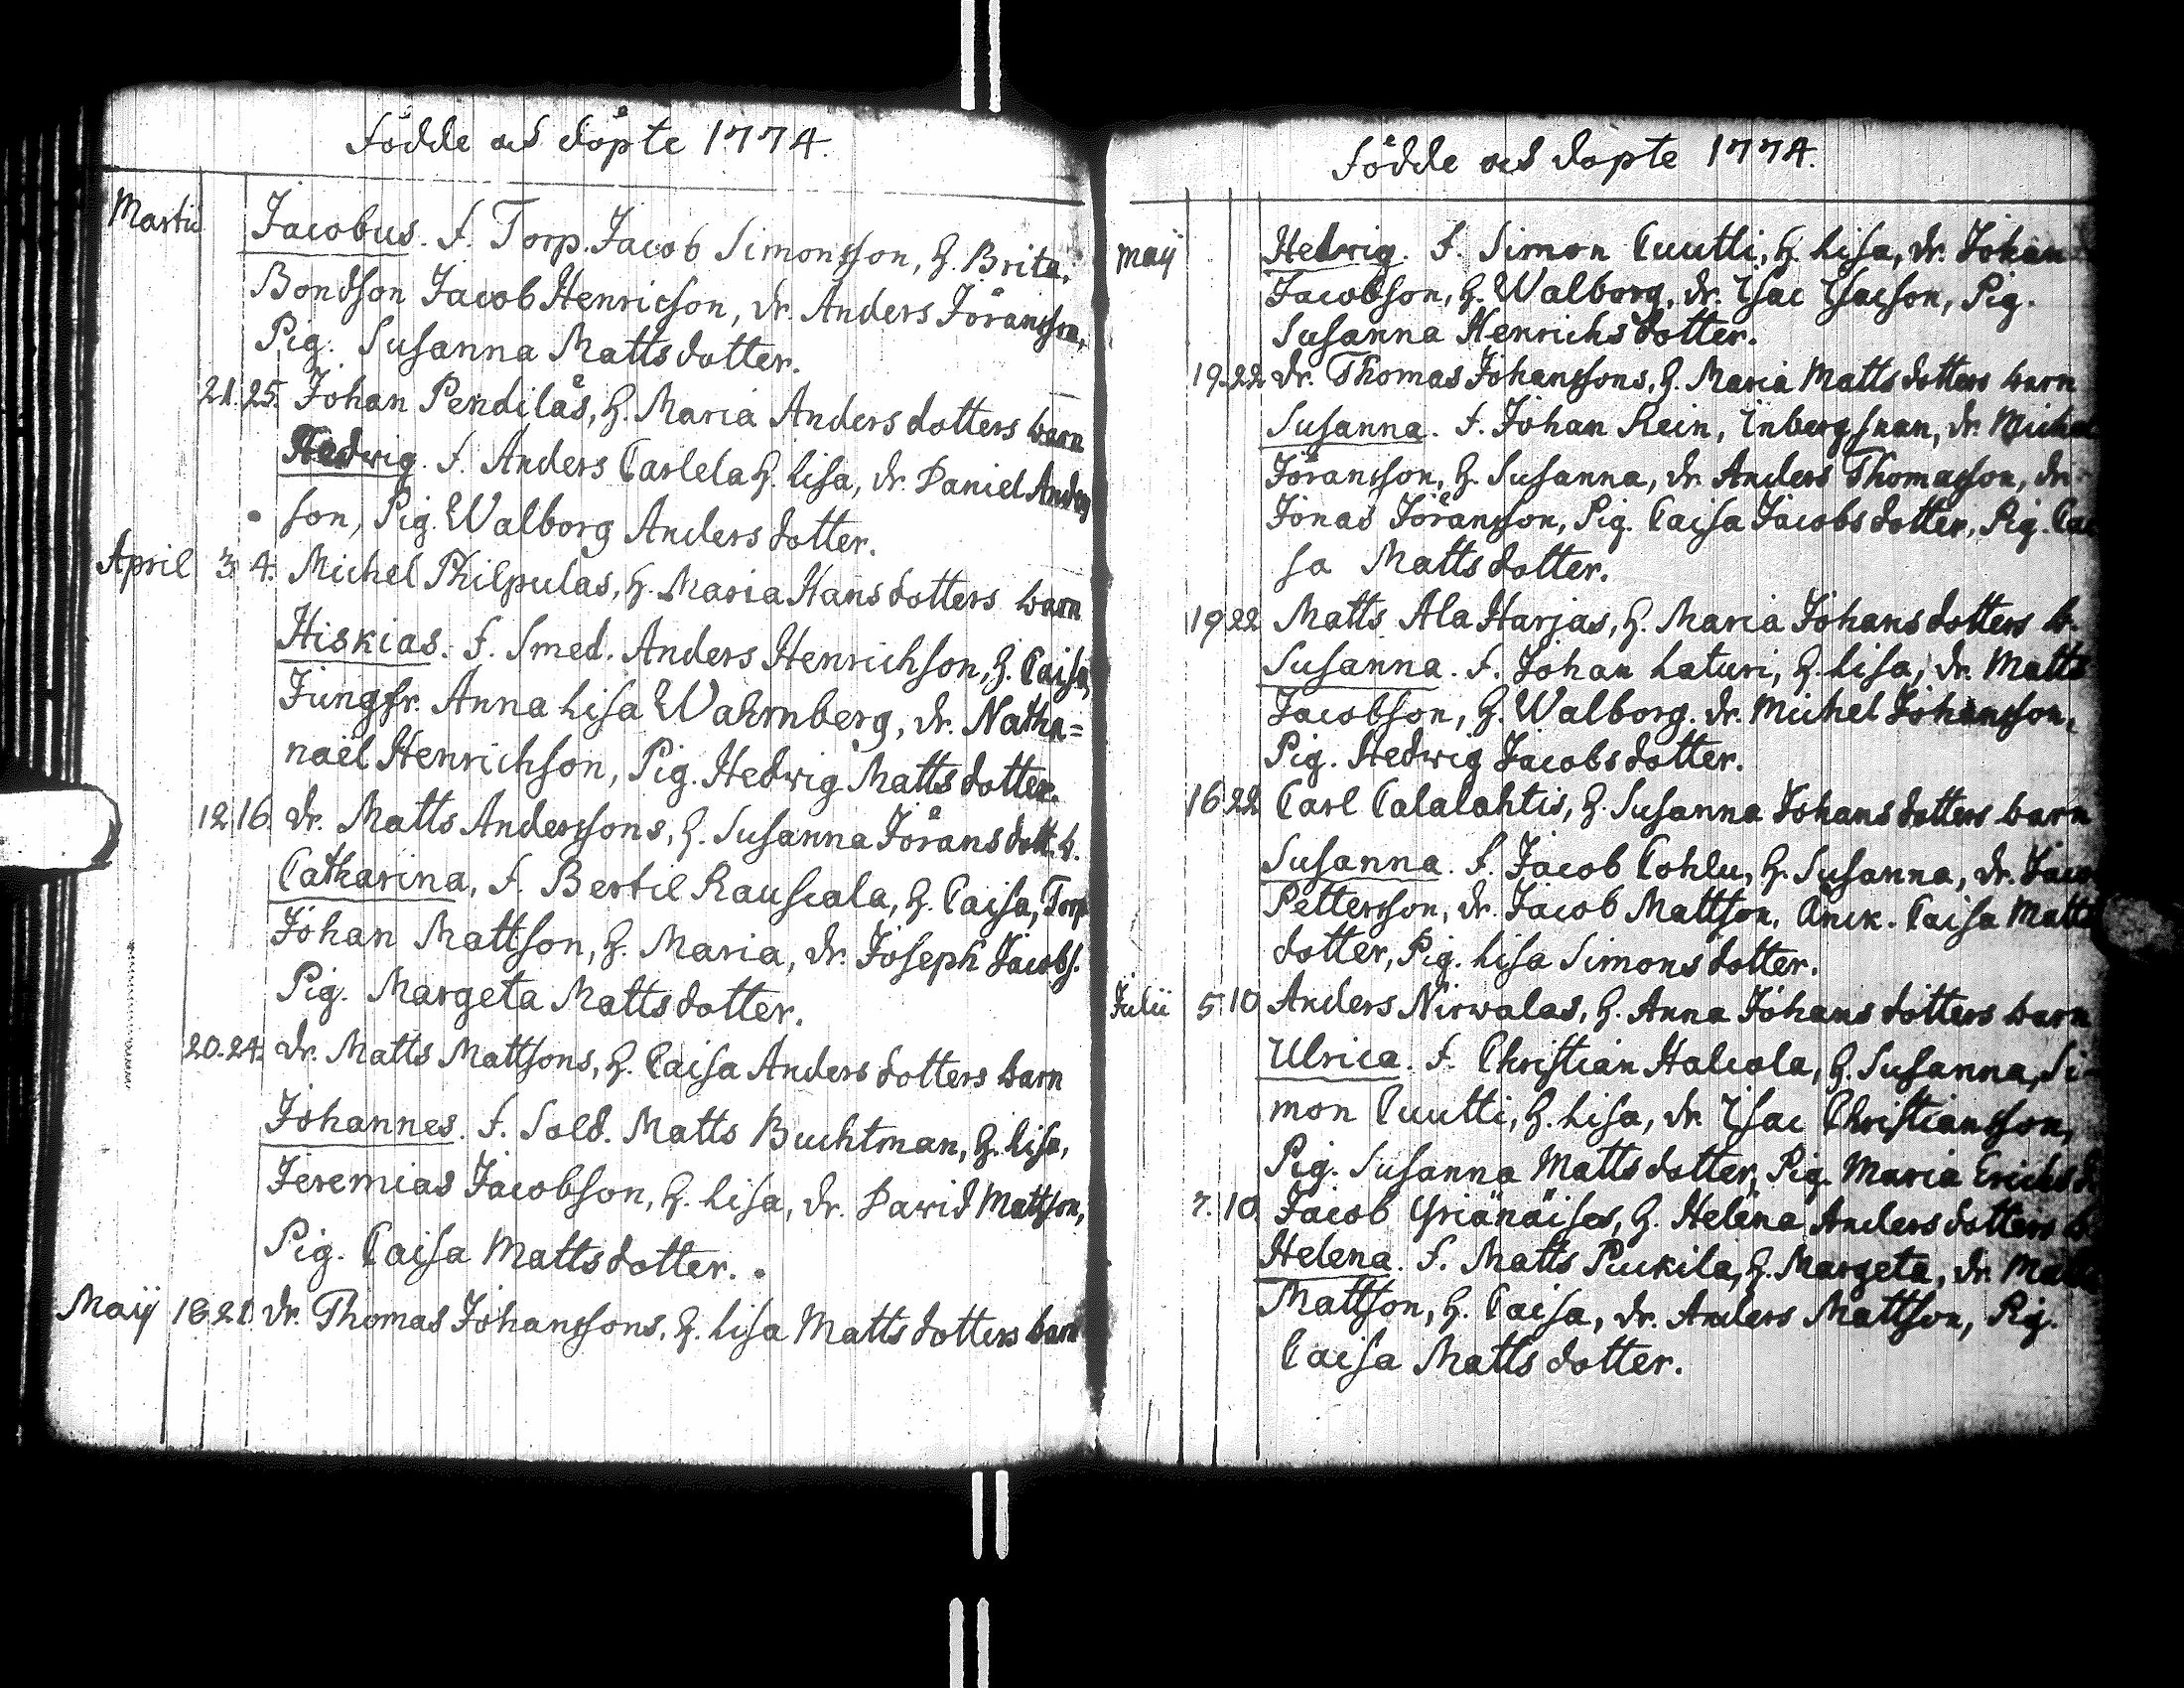 Födde och döpte 1774.
Martii Jacobus. f. Torp. Jacob Simonsson, H. Brita,
Bondson Jacob Henricson, dr. Anders Jöransson,
Pig. Susanna Mattsdotter.
21. 25. Johan Pendilås, H. Maria Andersdotters barn
Hedwig. f. Anders Carlela H. Lisa, dr. Daniel Anders
son, Pig. Walborg Andersdotter.
April 3. 4. Michel Philpulas, H. Maria Hansdotters barn
Hiskias. f. Smed. Anders Henrichson, H. Caisa,
Jungfr. Anna Lisa Wahrnberg, dr. Natha=
naël Henrichson, Pig. Hedwig Mattsdotter.
12 16. dr. Matts Anderssons, H. Susanna Jöransdott. b.
Catharina, f. Bertil Rauscala, H. Caisa, Torp
Johan Mattson, H. Maria, dr. Joseph Jacobs.
Pig. Margeta Mattsdotter.
20. 24. dr. Matts Mattsons, H. Caisa Andersdotters barn
Johannes. f. Sold. Matts Buchtman, H. Lisa,
Jeremias Jacobson, H. Lisa, dr. David Mattson,
Pig. Caisa Mattsdotter.
Maij 18 21. dr. Thomas Johanssons, H. Lisa Mattsdotters barn
Födde och döpte 1774.
Maij Hedwig. f. Simon Cuutti, H. Lisa, dr. Johan
Jacobson, H. Walborg, dr. Isac Isacson, Pig.
Susanna Henrichsdotter.
19. 22. dr. Thomas Johanssons, H. Maria Mattsdotters barn
Susanna. f. Johan Rein, Inbergsman, dr. Michel
Jöransson, H. Susanna, dr. Anders Thomasson, dr.
Jonas Jöransson, Pig. Caisa Jacobsdotter, Pig. Cai
sa Mattsdotter.
19 22 Matts Ala Harjas, H. Maria Johansdotters b.
Susanna. f. Johan Laturi, H. Lisa, dr. Matts
Jacobson, H. Walborg. dr. Michel Johansson,
Pig. Hedwig Jacobsdotter.
16 22 Carl Calalahtis, H. Susanna Johansdotters barn
Susanna. f. Jacob Cohlu, H. Susanna, dr. Jacob
Pettersson, dr. Jacob Mattson, Änck. Caisa Matts
dotter, Pig. Lisa Simonsdotter.
Julii 5. 10 Anders Nirwalas, H. Anna Johansdotters barn
Ulrica. f. Christian Halcola, H. Susanna, Si-
mon Cuutti, H. Lisa, dr. Isac Christiansson,
Pig. Susanna Mattsdotter, Pig. Maria Erichsd
7. 10. Jacob H. Helena Andersdotters b.
Helena. f. Matts Puukila, H. Margeta, dr. Matts
Mattson, H. Caisa, dr. Anders Mattson, Pig.
Caisa Mattsdotter.